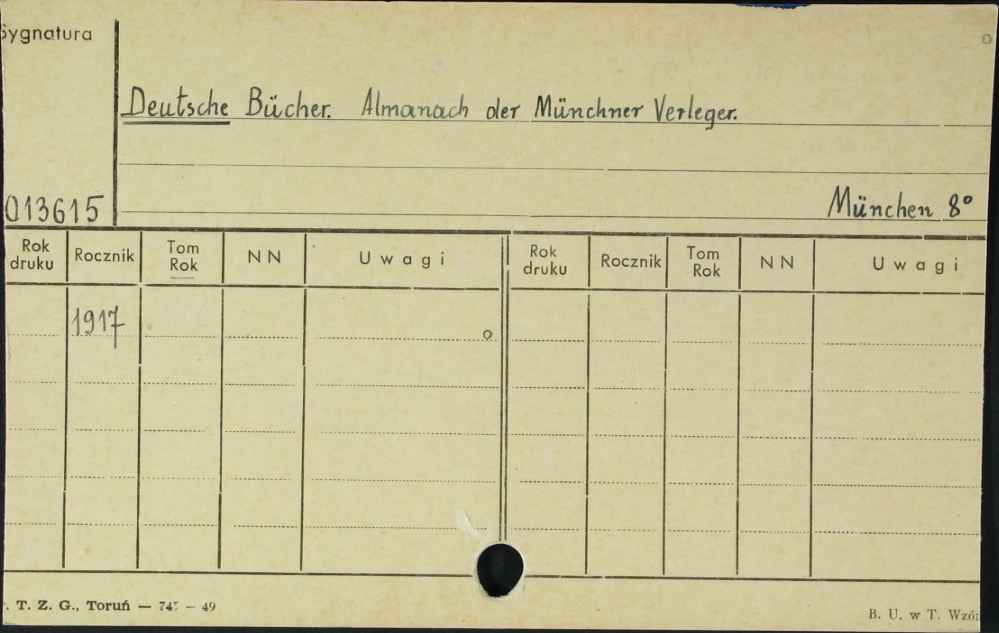 Sygnatura
Deutsche Bücher. Almanach der Münchner Verleger.
013615
München 8°
Rok druku Rocznik Tom Rok NN Uwagi Rok druku Rocznik Tom Rok NN Uwagi
1917
T. Z. G., Toruń — 49
B. U. w T.